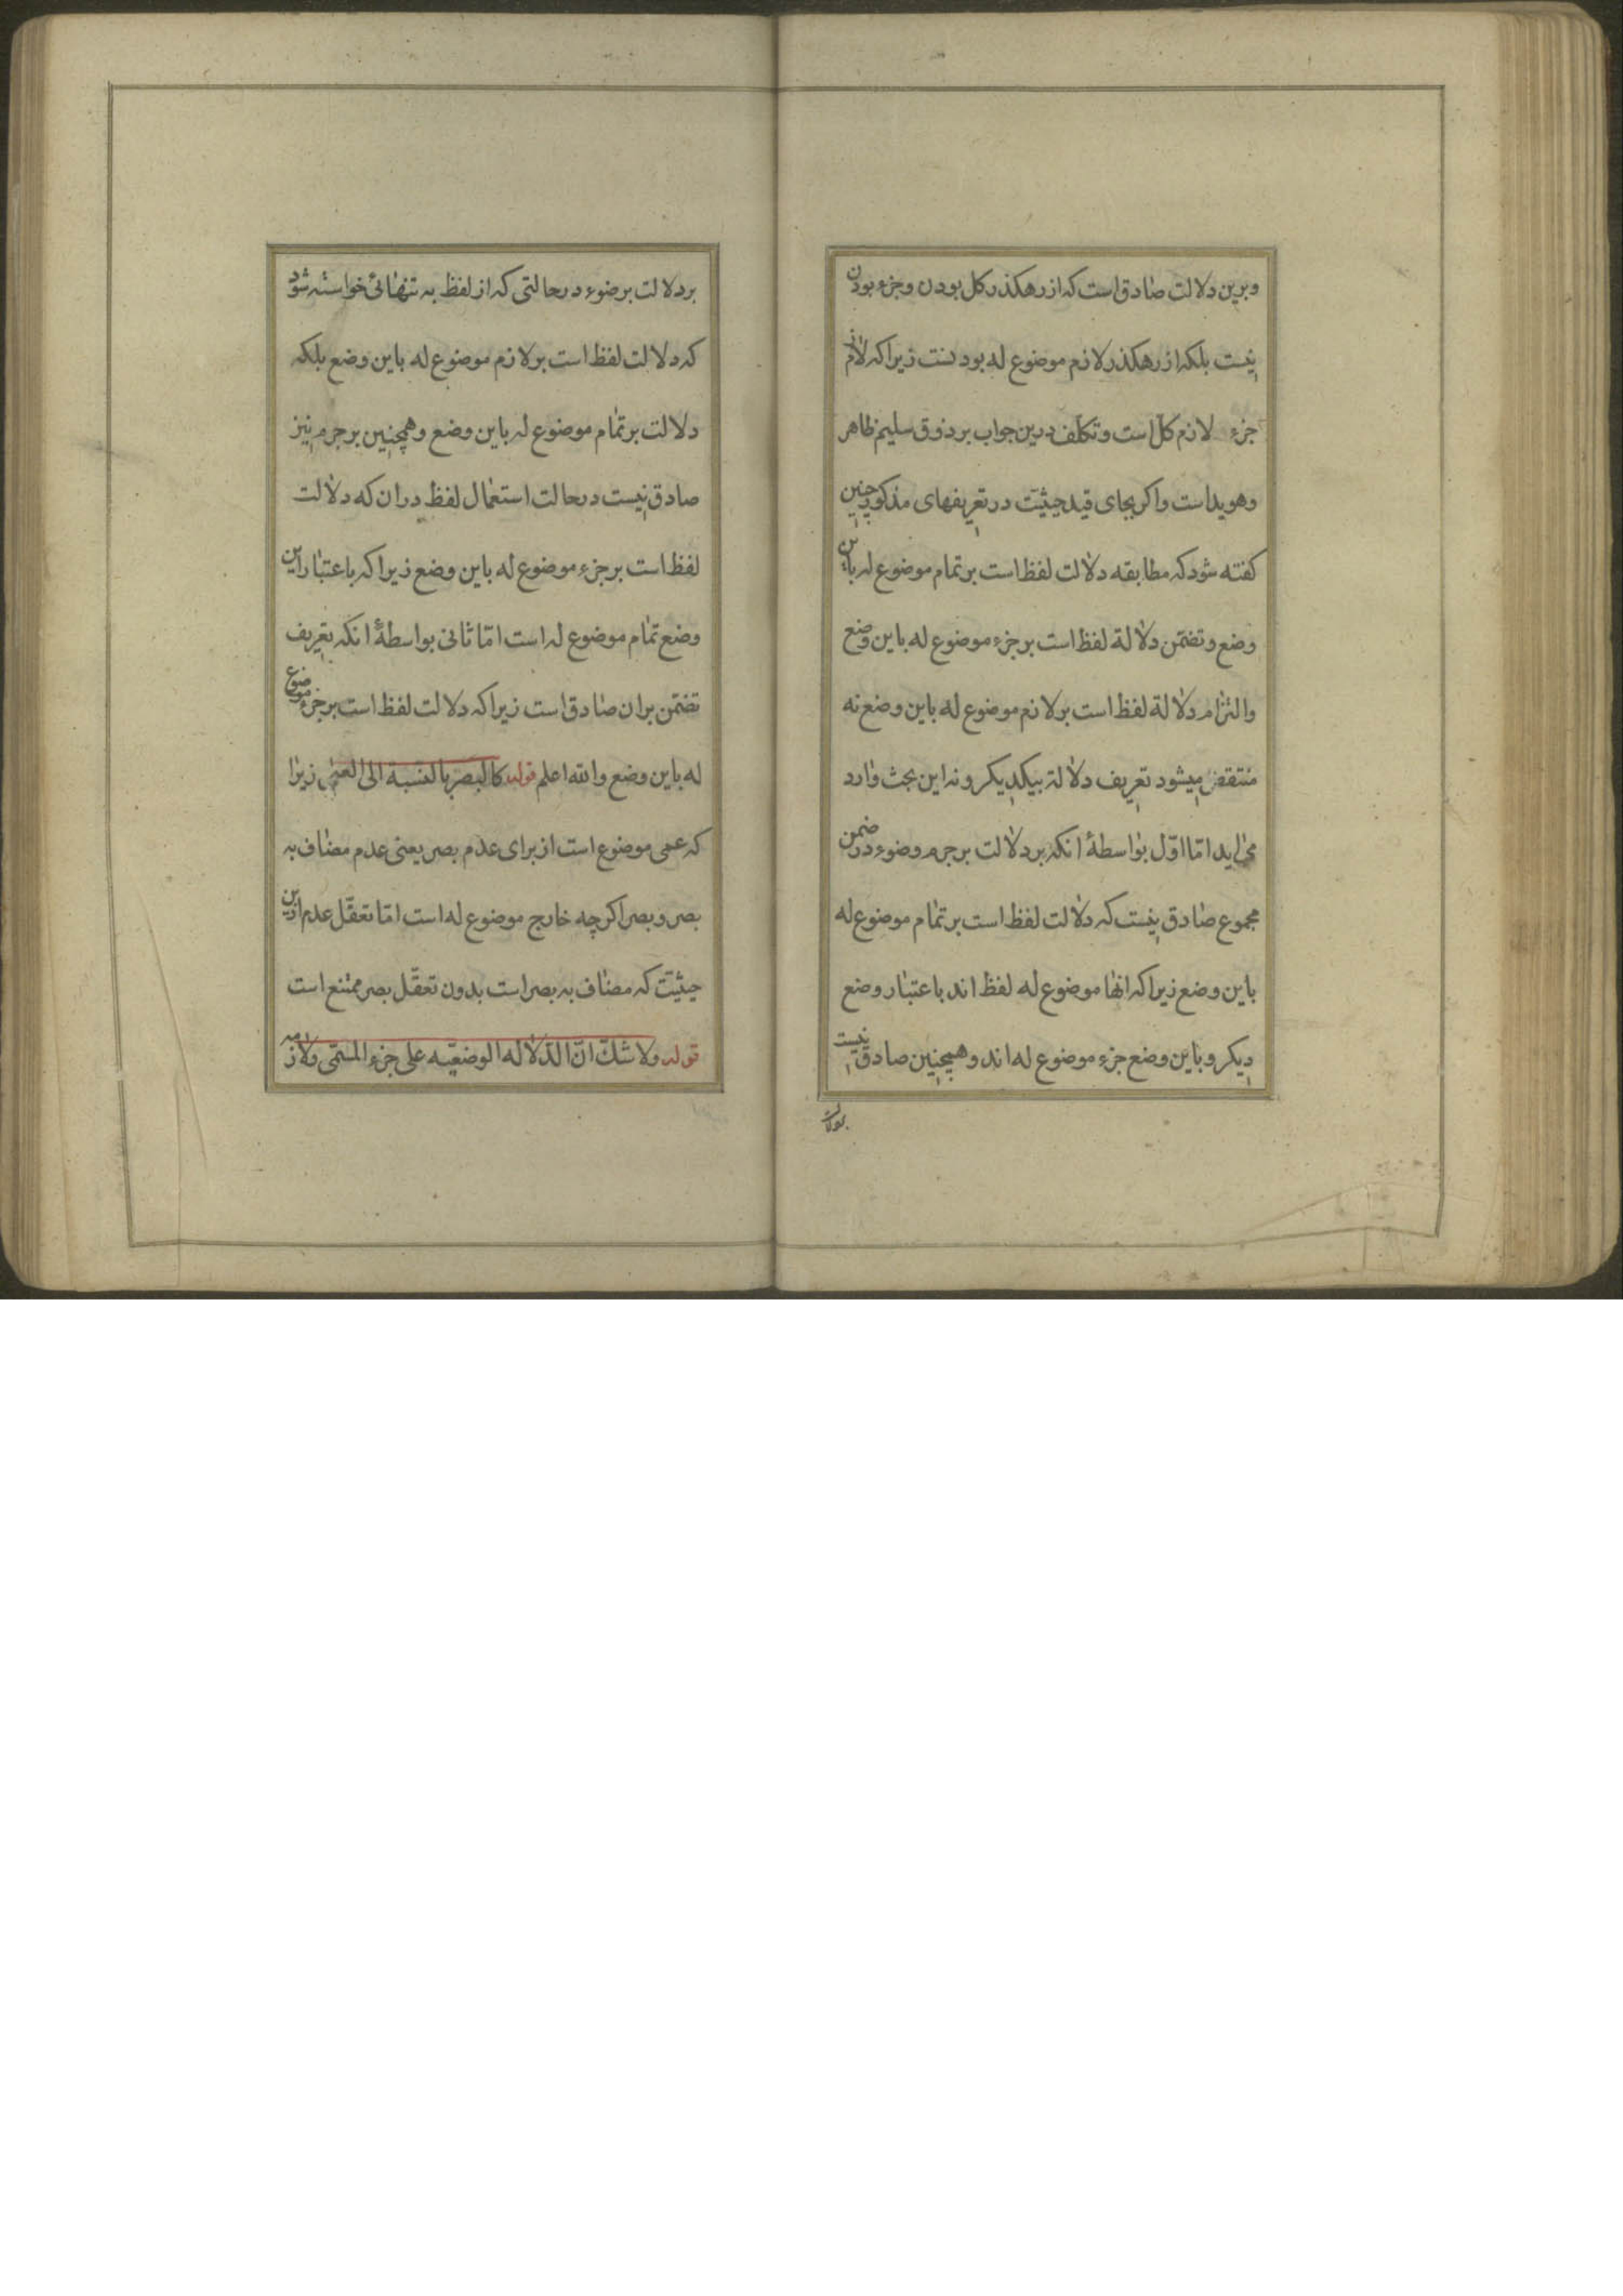 وبرین دلالت صادق است که از رهکذر کل بودن وجزء بودن
نیست بلکه از رهکذر لازم موضوع له بودنست زیرا که لازم
جزء لازم کل است وتکلف درین جواب بر ذوق سلیم ظاهر
وهویداست واکر بجای قید حیثیت در تعریفهای مذکور چنین
کفته شود که مطابقه دلالت لفظ است بر تمام موضوع له باین
وضع وتضمّن دلالة لفظ است بر جزء موضوع له باین وضع
والتزام دلالة لفظ است بر لازم موضوع له باین وضع نه
منتقض میشود تعریف دلالة بیکدیکر ونه این بحث وارد
می اید امّا اوّل بواسطهٔ انکه بر دلالت بر جرم وضوء در ضمن
مجموع صادق نیست که دلالت لفظ است بر تمام موضوع له
باین وضع زیرا که انها موضوع له لفظ اند باعتبار وضع
دیکر وباین وضع جزء موضوع له اند وهمچنین صادق نیست
بر دلالت بر ضوء در حالتی که از لفظ به تنهائی خواسته شود
که دلالت لفظ است بر لازم موضوع له باین وضع بلکه
دلالت بر تمام موضوع له باین وضع وهمچنین بر جرم نیز
صادق نیست در حالت استعمال لفظ در ان که دلالت
لفظ است بر جزء موضوع له باین وضع زیرا که باعتبار این
وضع تمام موضوع له است امّا ثانی بواسطهٔ انکه تعریف
تضمّن بران صادق است زیرا که دلالت لفظ است بر جزء موضوع
له باین وضع والله اعلم قوله کالبصر بالنسبه الی العمی زیرا
که عمی موضوع است از برای عدم بصر یعنی عدم مضاف به
بصر وبصر اکرچه خارج موضوع له است امّا تعقّل عدم ازین
حیثیّت که مضاف به بصر است بدون تعقّل بصر ممتنع است
قوله ولا شكّ انّ الدّلاله الوضعیّه علی جزء المسمّی ولازمه